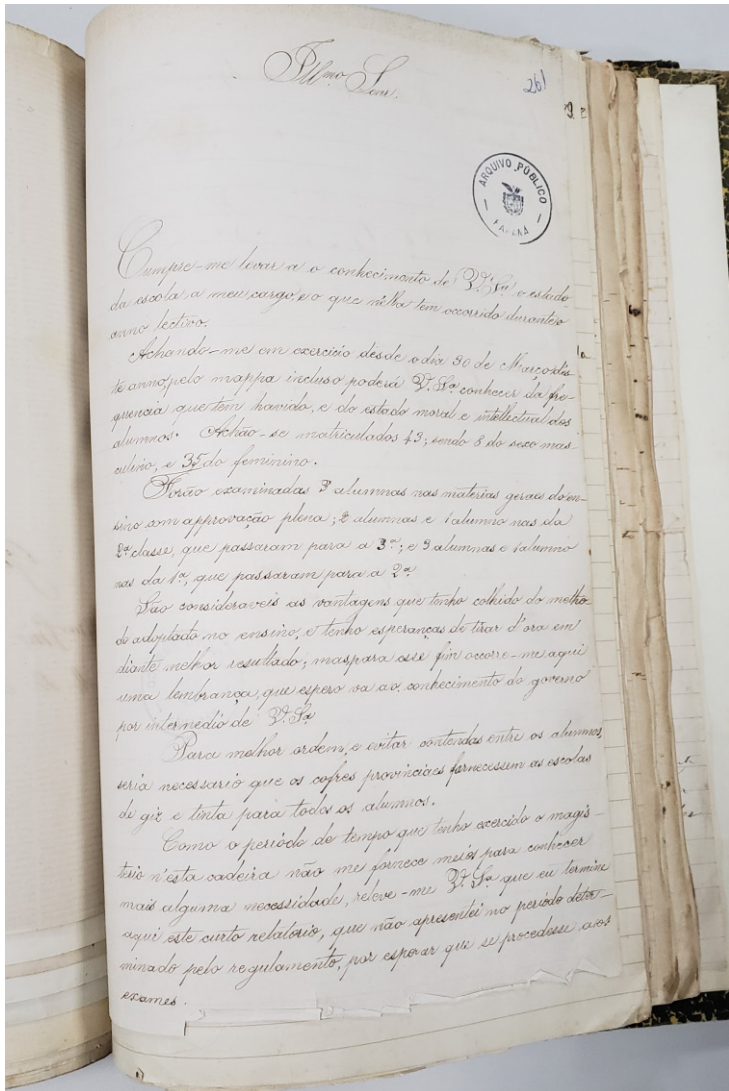 Illmo. Senr.
261
ARQUIVO PÚBLICO
PARANÁ
Cumpre-me levar a o conhecimento de V. Sª. o estado
da escola, a meu cargo, e o que n'ella tem occorrido durante o
anno lectivo.
Achando-me em exercicio désde o dia 30 de Março dés-
te anno, pelo mappa incluso poderá V. Sª. conhecer da fre-
quencia que tem havido, e do estado moral e intellectual dos
alumnos. Achão-se matriculados 43; sendo 8 do sexo mas-
culino, e 35 do feminino.
Forão examinadas 3 alumnas nas materias geraes do en-
sino com approvação plena; 2 alumnas e 1 alumno nas da
2ª classe, que passaram para a 3ª; e 3 alumnas e 1 alumno
nas da 1ª, que passaram para a 2ª.
São consideraveis as vantagens que tenho colhido do metho-
do adoptado no ensino, e tenho esperanças de tirar d'ora em
diante melhor resultado; mas para esse fim occorre-me aqui
uma lembrança, que espero va ao conhecimento do governo
por intermedio de V. Sª.
Para melhor ordem, e evitar contendas entre os alumnos,
seria necessario que os cofres provinciaes fornecessem as escolas
de giz e tinta para todos os alumnos.
Como o periódo de tempo que tenho exercido o magis-
terio n'esta cadeira não me fornece meiós para conhecer
mais alguma necessidade, reléve-me V. Sª. que eu termine
aqui este curto relatorio, que não apresentei no periódo deter-
minado pelo regulamento, por esperar que se procedesse aos
exames.